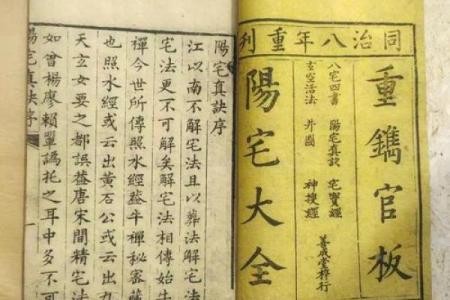 同治八年重刊
重鐫官板
八宅四書 陽宅真訣 宅寶經
玄空活法 并圖 神搜經
陽宅大全
善成堂梓行
陽宅真訣序
江以南不解宅法且以葬法
宅法更不可解矣解宅法相傳始
禪今世所傳照水經葢平禪秘密
也照水經或云出黃石公或云出九
天玄女要之都誤㨿唐宋間精宅法
如曾楊廖賴輩譌托之耳中多不可
陽宅真訣序